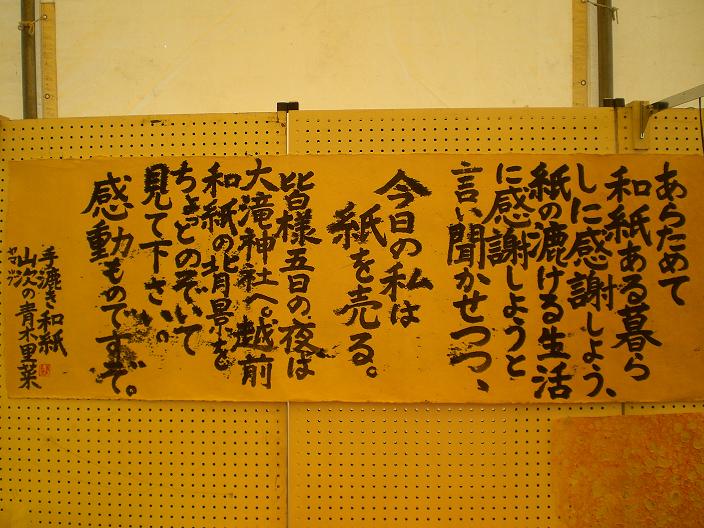 あらためて
和紙ある暮ら
しに感謝しよう、
紙の漉ける生活
に感謝しようと
言い聞かせつつ、
今日の私は
紙を売る。
皆様五日の夜は
大滝神社へ。越前
和紙の背景を
ちょとのぞいて
見て下さい。
感動ものですぞ。
手漉き和紙
山次の青木里菜
ヤマツグ